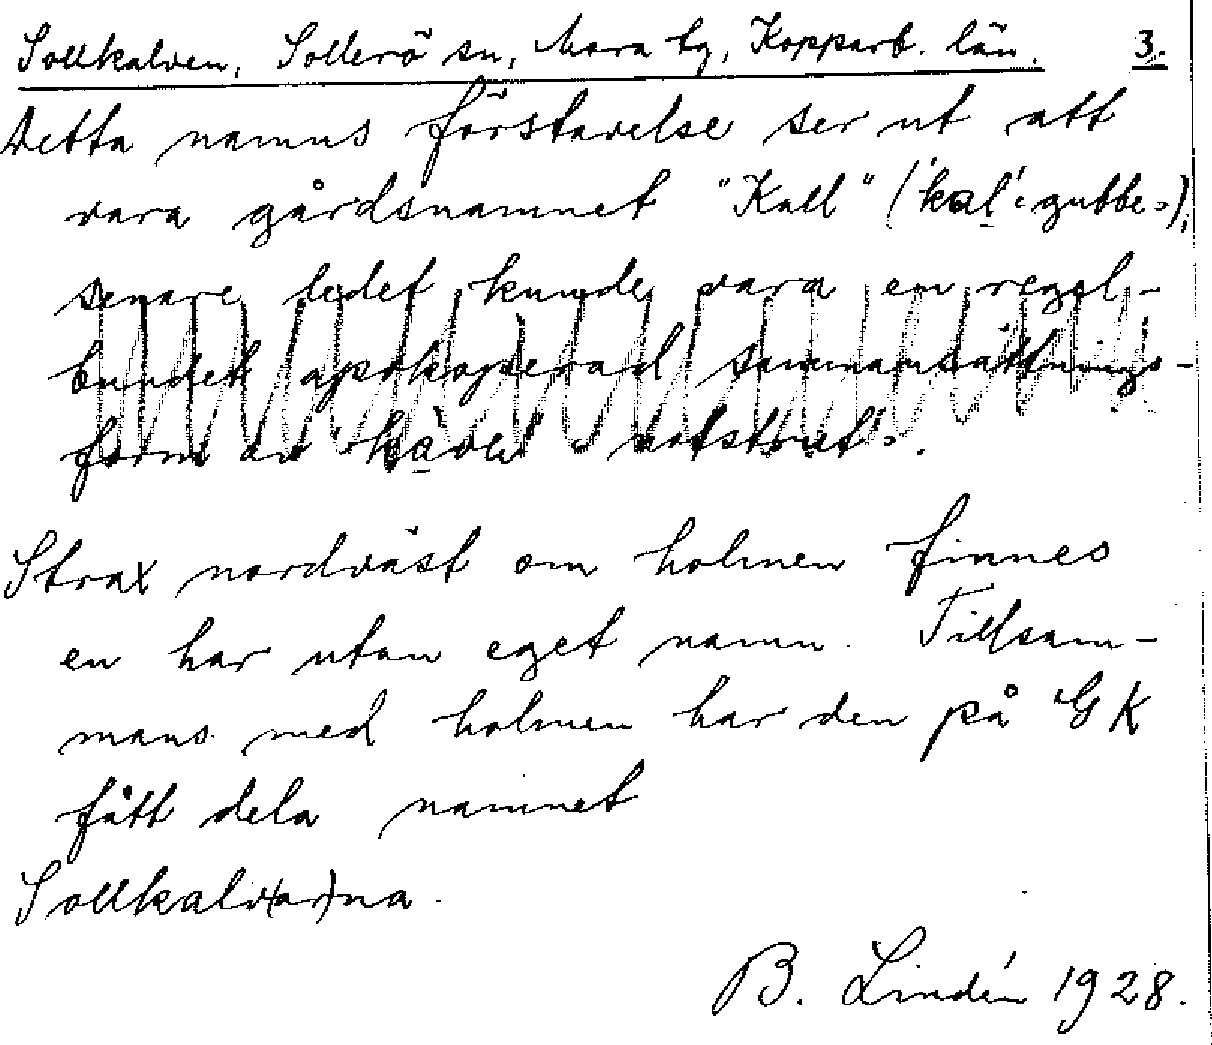 Sollkalven, Sollerö sn, Mora tg, Kopparb. län. 3.
Detta namns förstavelse ser ut att
vara gårdsnamnet "Kall" ('kal' 'gubbe'),
senare ledet kunde vara en regel-
bundet apokoperad sammansättnings-
form av
Strax nordväst om holmen finnes
en har utan eget namn. Tillsam-
mans med holmen har den på GK
fått dela namnet
Sollkalv(ar)na.
B. Lindén 1928.